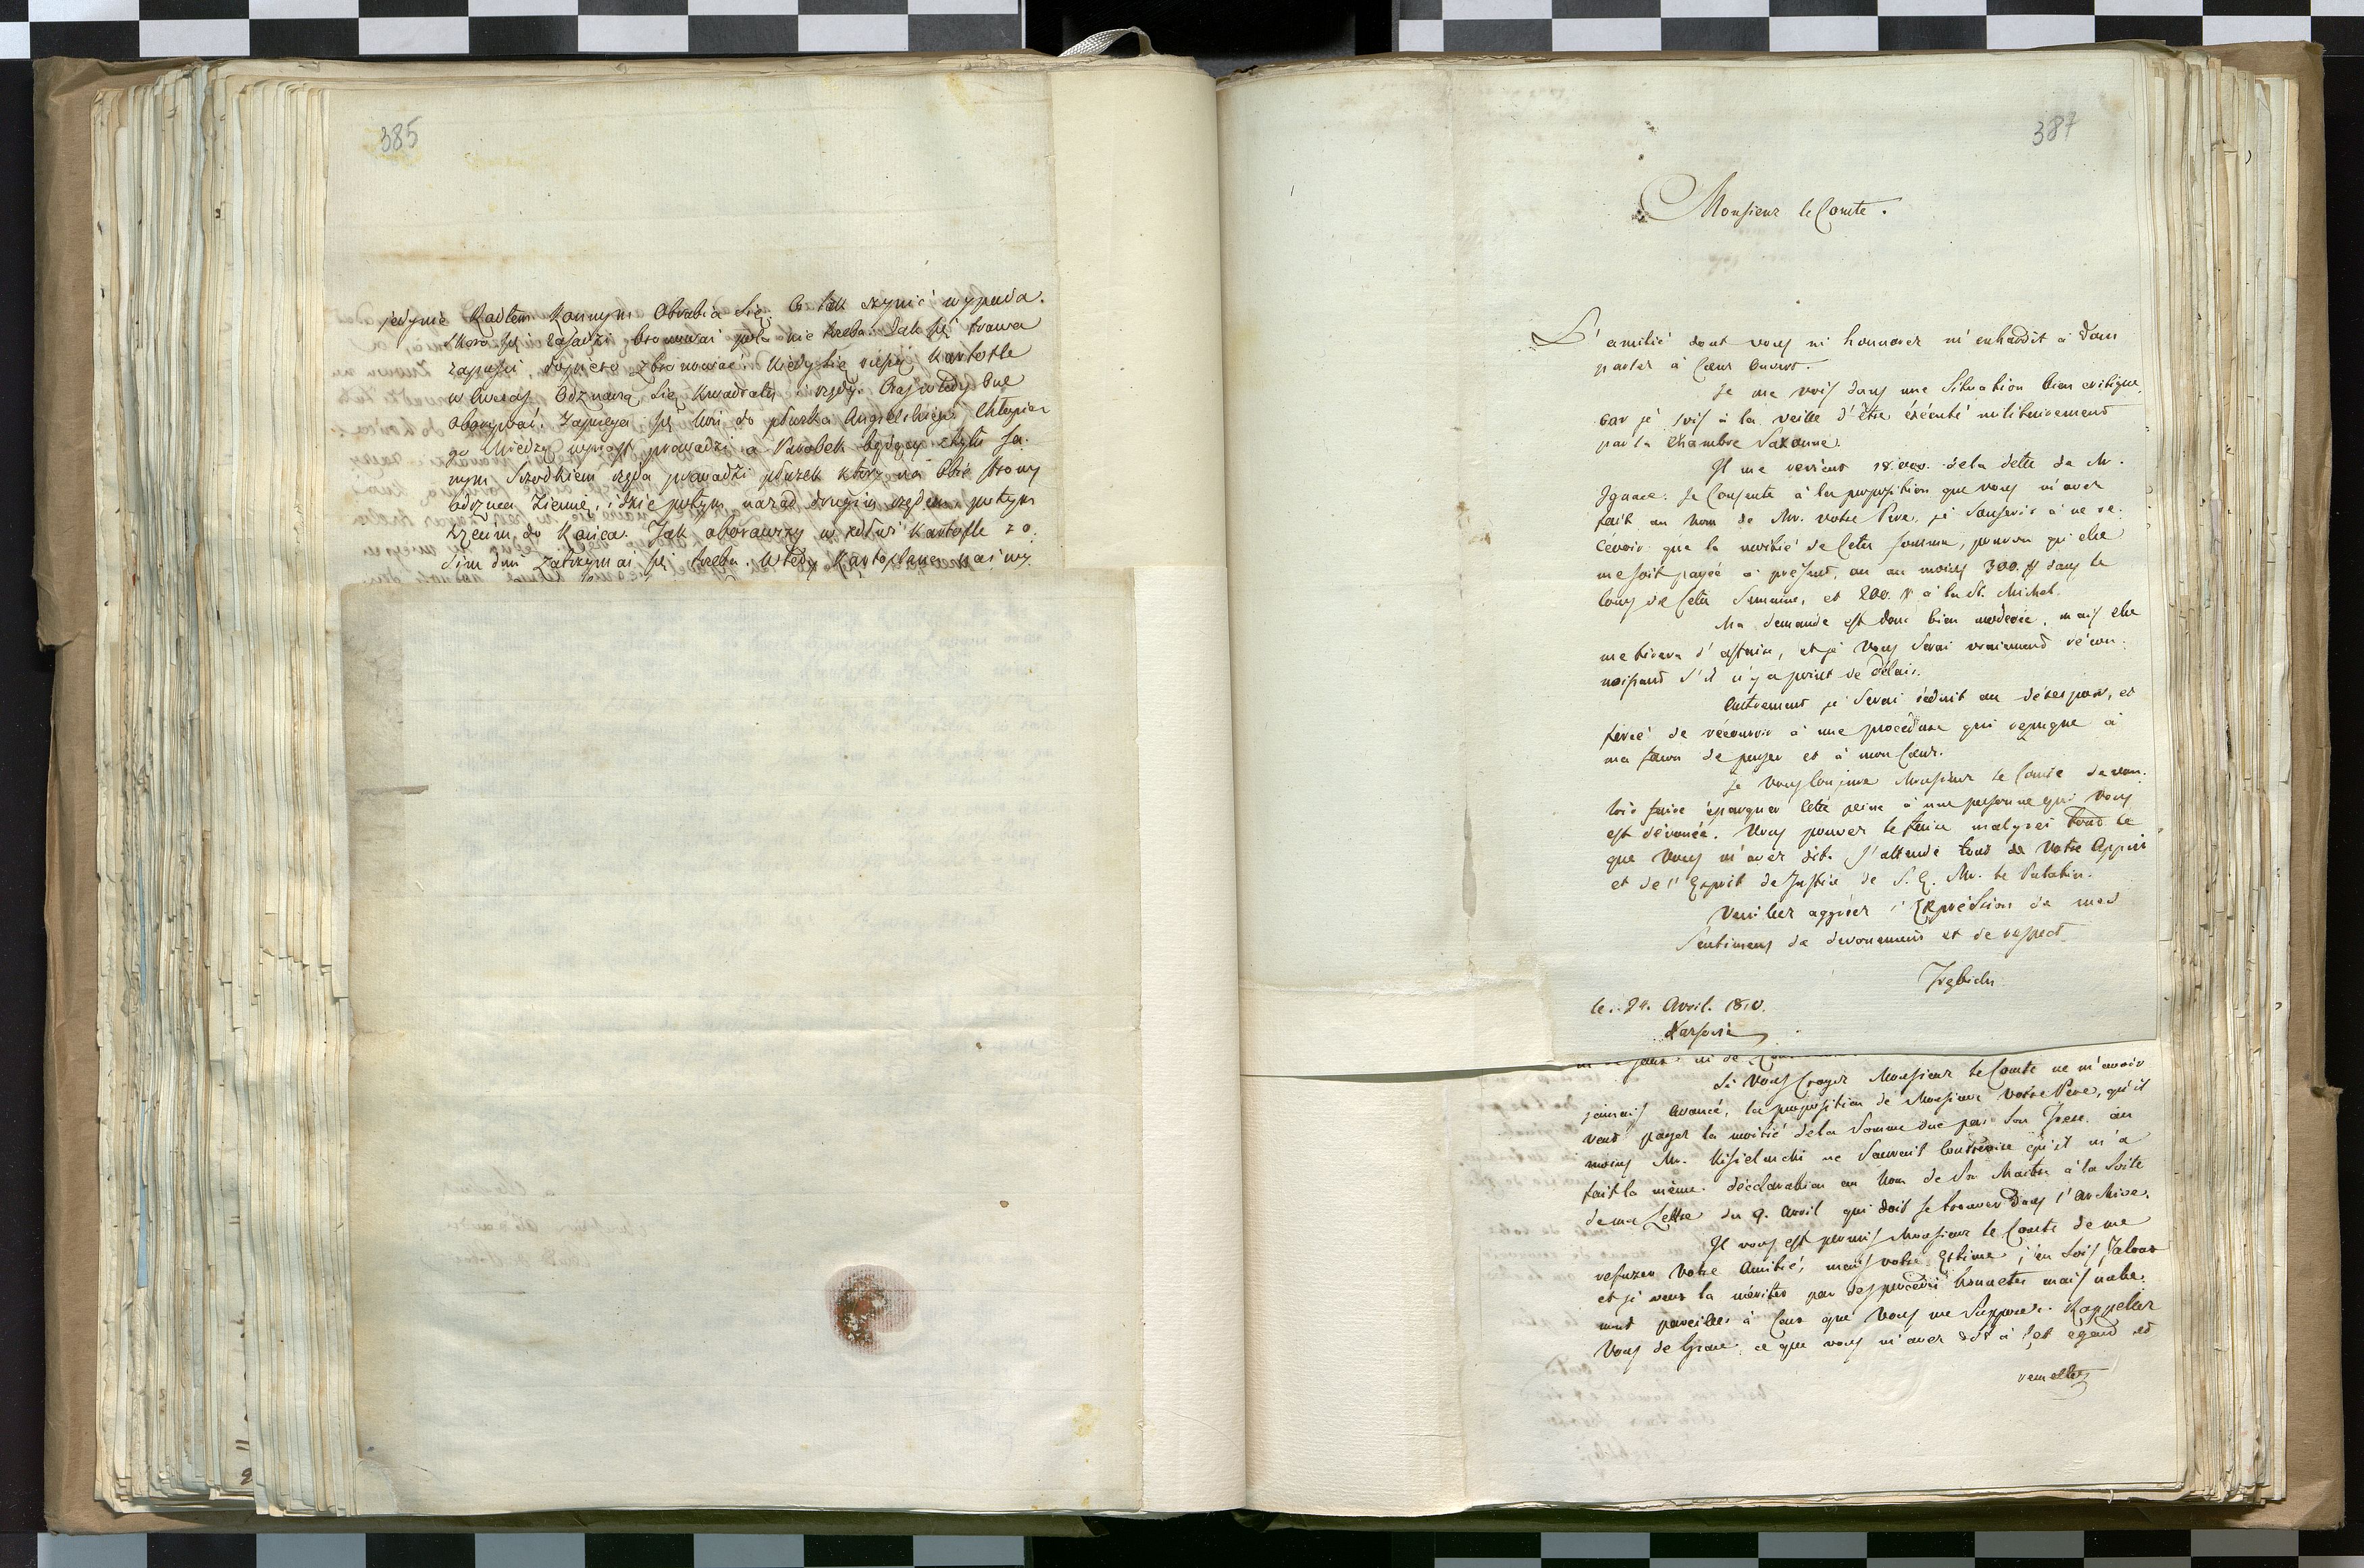 385
jedynie Radłem Konnym Obrabia Się. Co tak czynić wypada.
Skoro się zasadzi bronować pola nie trzeba. Jak się trawa
zapuści, dopiero zbronować. Kiedy się Kartofle
Odznaczą Się Kwadraty i rzędy. Czas wtedy One
oborywać. Zaprzega się Koń do płużka Angielskiego Chłopiec
go Miedzą wprost prowadzi, a Parobek będący z tyłu sa.
mym Szrodkiem rzęda prowadzi płużek który na Obie strony
odrzuca Ziemię, i idzie potym nazad drugim rzędem potym
trzecim, do Końca. Jak oborawszy Kartofle z o.
śim dni zatrzymać się trzeba. Wtedy
387
Monsieur le Comte.
L'amitié dont vous m'honnorez m'enhardit à Vous
parler à Cœur Ouvert.
Je me vois dans une Situation bien critique
car je suis à la veille d'être éxécuté militairement
par la Chambre Saxonne.
Il me revient 18.000. de la dette de Mr.
Ignace. Je Consente à la proposition que vous m'avez
fait au Nom de Mr. votre Pere, je Souscris à ne re.
cévoir que la moitié de Cette Somme, pourvu qu'elle
me soit payée à présent, au au moins 300. # dans le
Cours de Cette Semaine, et 200. # à la St. Michel.
Ma demande est donc bien moderée, mais elle
me tirera d'affaire, et je Vous Serai vraiement récon.
noissant s'il n'y a point de Délais.
Autrement je Serai réduit au désespoir, et
forcé de récourir à une procédure qui repugne à
ma facon de penser et à mon Cœur.
Je Vous Conjure Monsieur le Comte de vou.
loir faire épargner Cette peine à une personne qui Vous
est dévouée. Vous pouvez le faire malgrés tout ce
que Vous m'avez dit. J'attends tout de Votre Appui
et de l'Esprit de Justice de S. E. Mr. le Palatin.
Veuillez aggréer l'Expréssion de mes
Sentimens de devouement et de respect
le. 24. Avril. 1810.
Varsovie
Si Vous Croyez Monsieur le Comte ne m'avoir
jamais Avancé, la proposition de Monsieur Votre Pere, qu'il
veut payer la moitié de la Somme due par Son Frere. au
moins Mr. Kisielnicki ne Sauroit Contredire qu'il m'a
fait la même déclaration au Nom de Son Maitre à la Suite
de ma Lettre du 9. Avril qui doit se trouver Dans l'Archive.
Il vous est permis Monsieur le Comte de me
refuser Votre Amitié, mais votre Estime j'en Suis Jaloux
et je veux la mériter par des procédés honnetes mais nulle.
ment pareilles à Ceux que Vous me Supposez. Rappellez
Vous de Grace ce que vous m'avez dit à Cet égard et
remettez